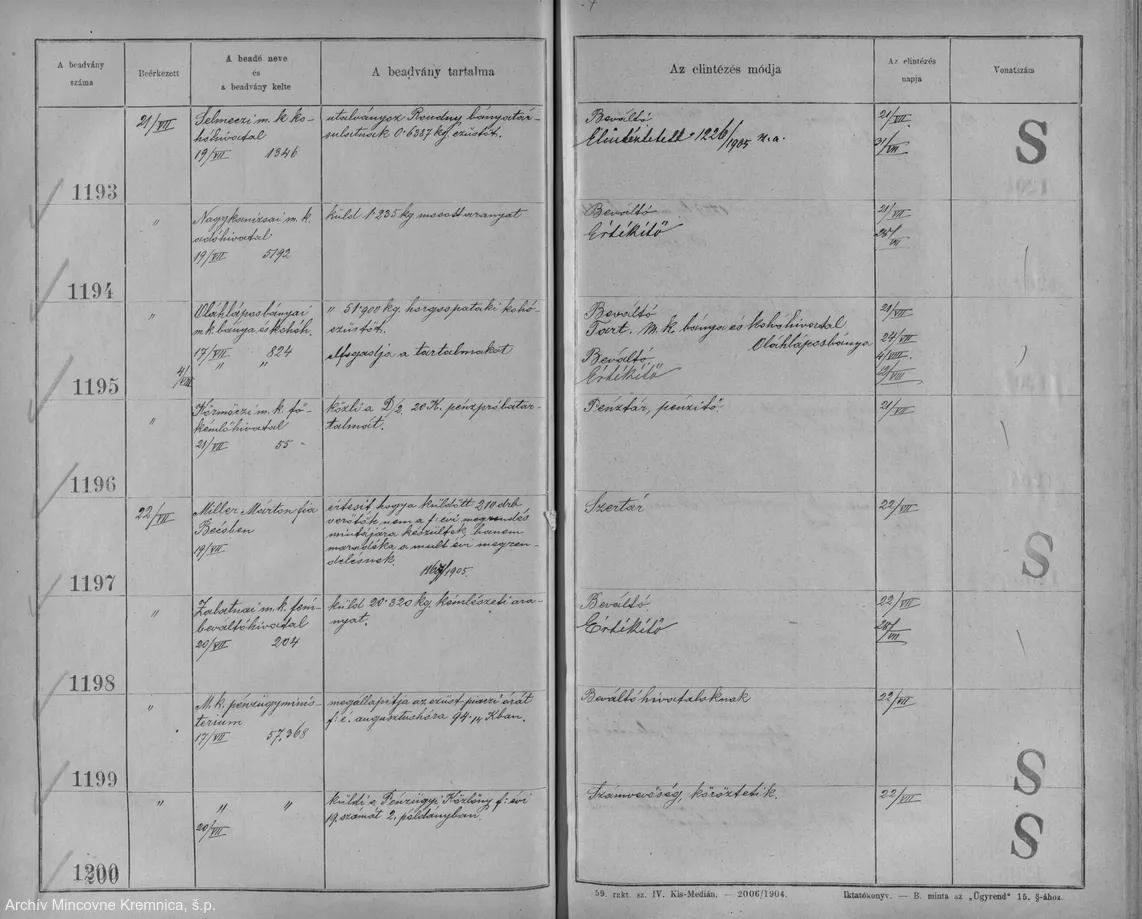 A beadvány száma
Beérkezett
A beadó neve és a beadvány kelte
A beadvány tartalma
Az elintézés módja
Az elintézés napja
Vonatszám
1193
21/VII
Selmeczi m. k. ko-
hóhivatal
19/VII 1346
utalványoz Rondny bányatár-
sulatnak 0·6387 kg. ezüstöt.
Beváltó
1226/1905
21/VII
31/VII
S
1194
"
Nagykanizsai m. k.
adóhivatal
19/VII 5192
küld 1·235 kg mosott aranyat
Beváltó
Értékítő
21/VII
28/VII
1195
"
Oláhláposbányai
m. k. bánya és kohóh.
17/VII 824
4/VIII " "
" 51·900 kg. horgospataki kohó-
ezüstöt.
elfogadja a tartalmakat
Beváltó
Tart. M. k. bánya és kohóhivatal
Oláhláposbánya
Beváltó
Értékítő
21/VII
24/VII
4/VIII.
12/VIII
1196
"
Körmöczi m. k. fő-
kémlőhivatal
21/VII 55
közli a D/2. 20 K. pénzpróbatar-
talmát.
Pénztár, pénzítő.
21/VII
1197
22/VII
Miller Márton fia
Bécsben
19/VII
értesít hogy a küldött 210 drb
verőtők nem a f. évi megrendés
mintájára készültek, hanem
maradéka a mult évi megren-
delésnek.
/1905.
Szertár
22/VII
S
1198
"
Zalatnai m. k. fém-
beváltóhivatal
20/VII 204
küld 20·320 kg. kémlészeti ara-
nyat.
Beváltó
Értékítő
22/VII
28/VII
1199
"
M. k. pénzügyminis-
terium
17/VII 57.368
megállapítja az ezüst piaczi árát
f. é. augusztus hóra 94·14 Kban.
Beváltóhivataloknak
22/VII
S
1200
"
" "
20/VII
küldi a Pénzügyi Közlöny f. évi
19. számát 2. példányban.
Számvevőség, köröztetik.
22/VII
S
59. rakt. sz. IV. Kis-Medián. — 2006/1904.
Iktatókönyv. — B. minta az „Ügyrend" 15. §-ához.
Archív Mincovne Kremnica, š.p.